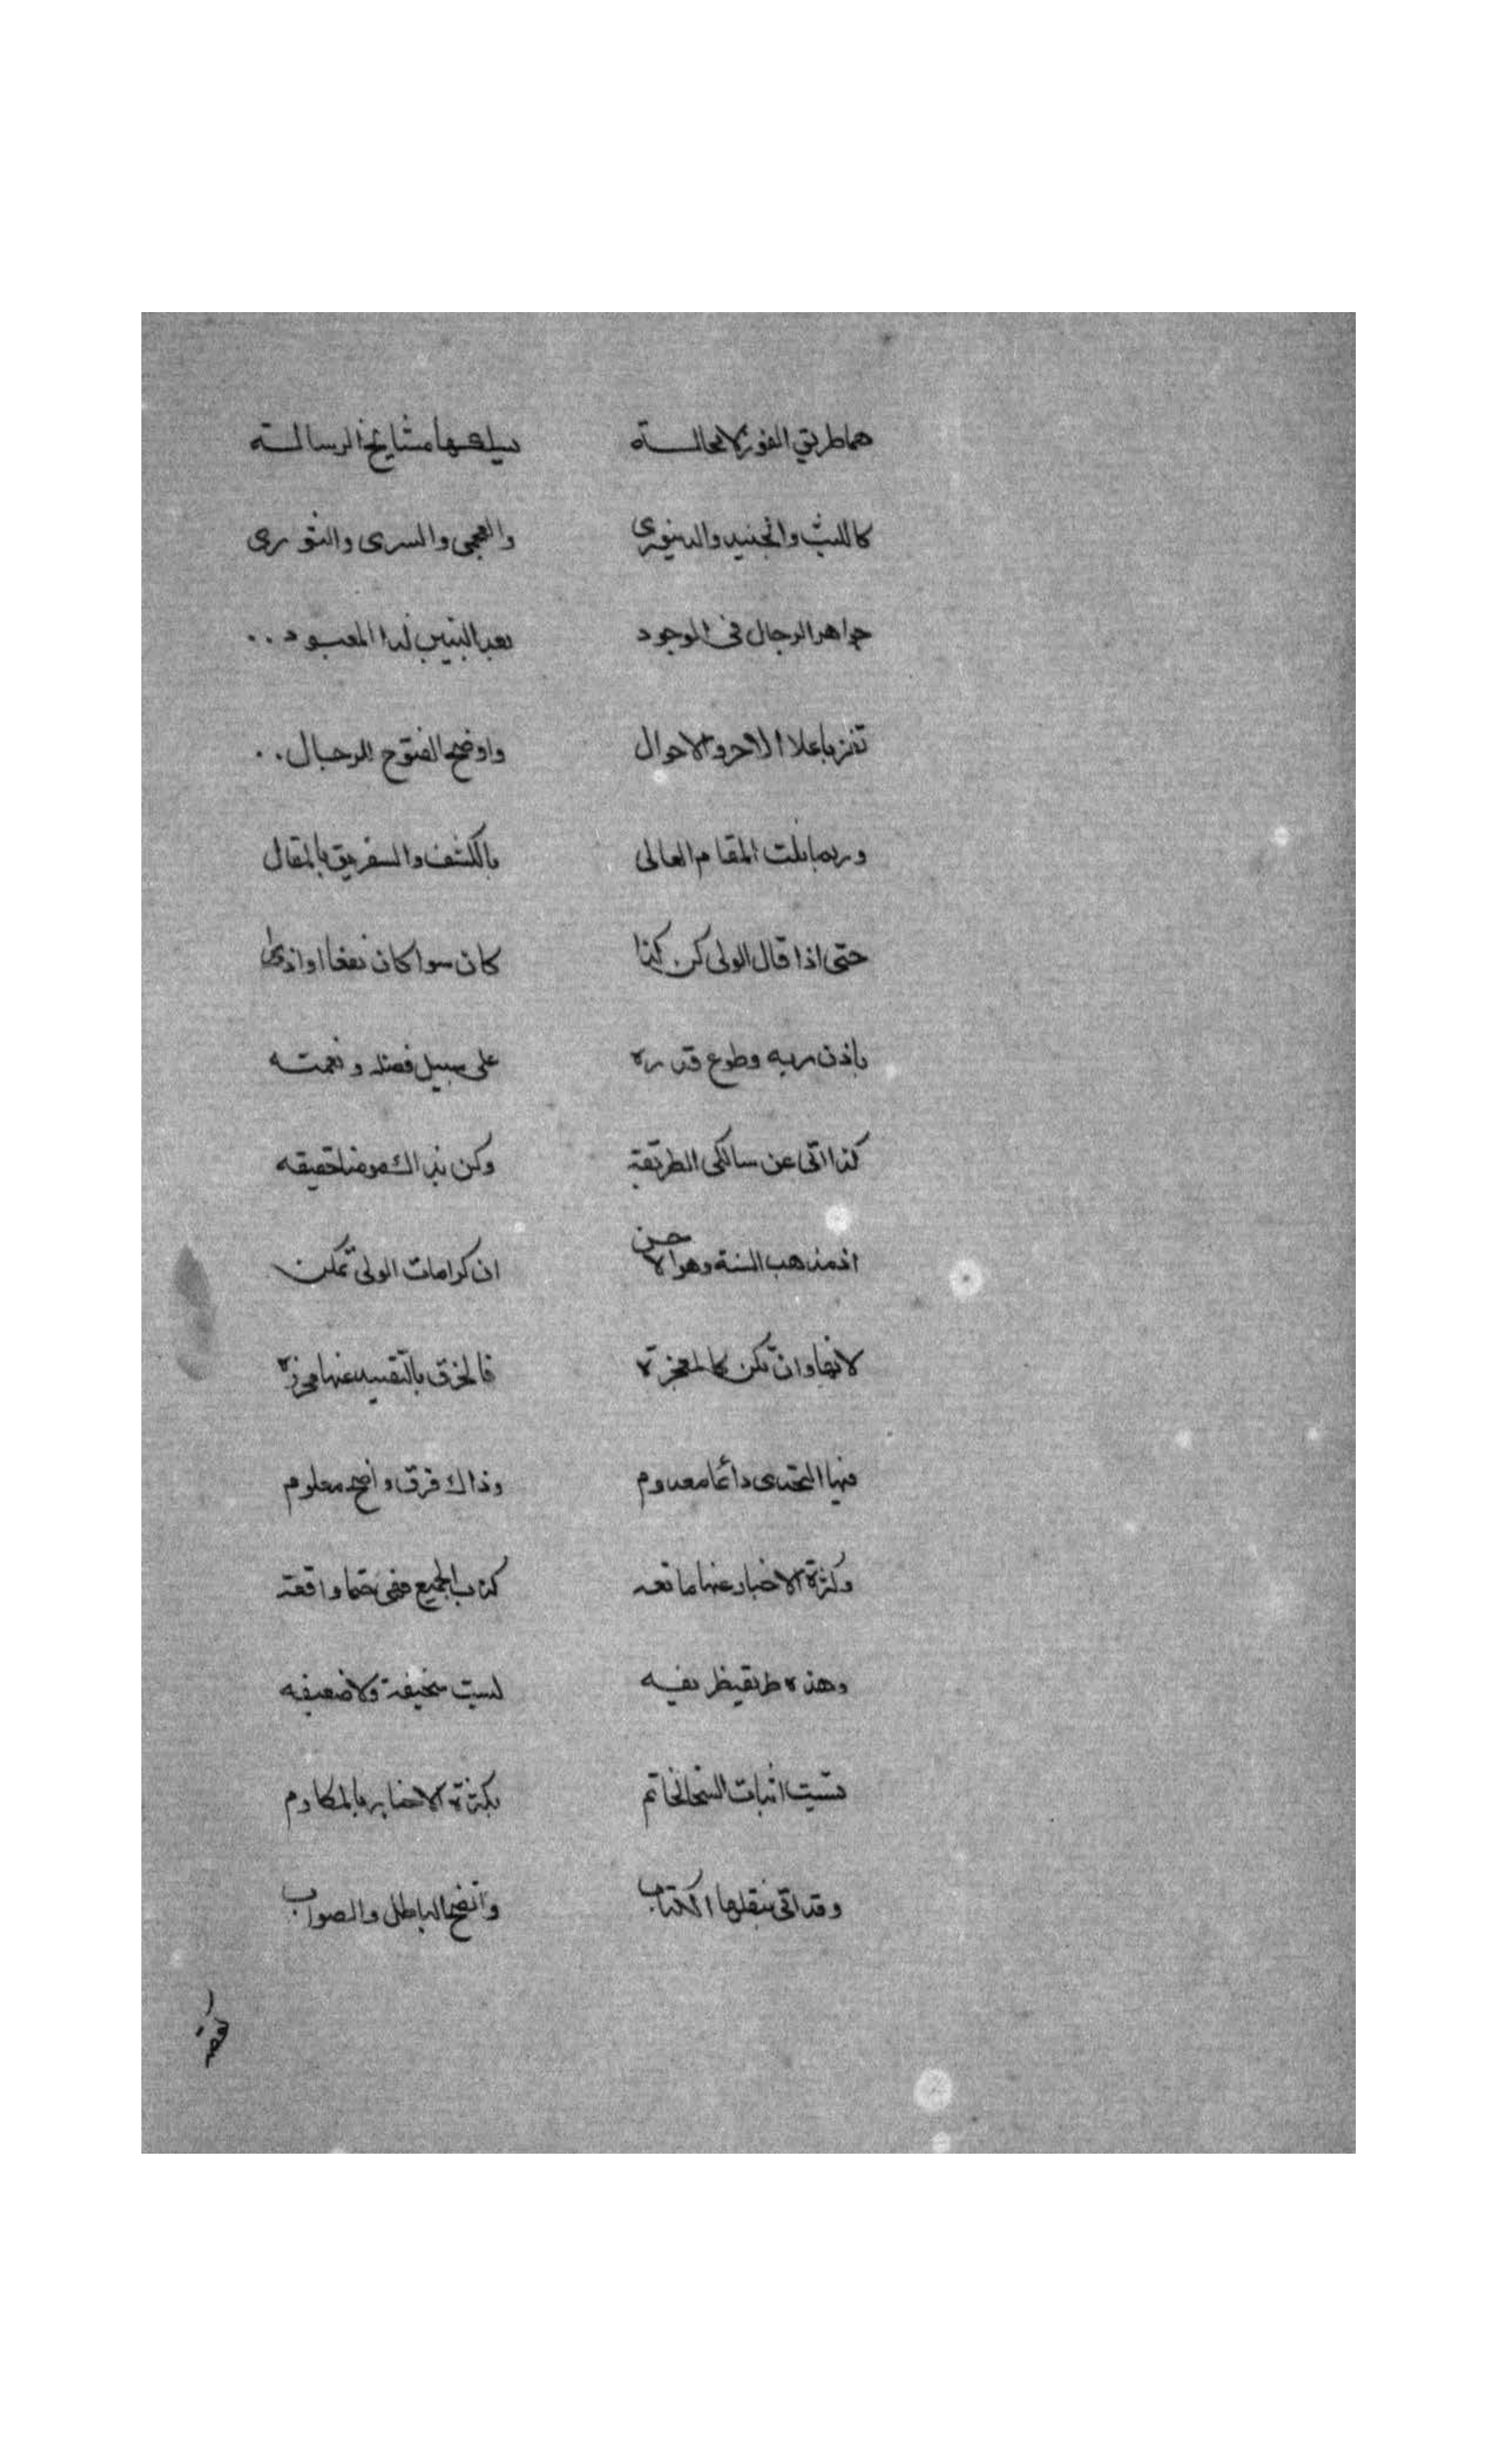 هما طريق الفوز لا محالـــة سلكها مشايخ الرسالــة
كالليث والجنيد والدينوري والعجمي والسري والنوري
جواهر الرجال في الوجود بعد النبيين لدا المعبود . .
تفز باعلا الاجر والاحوال واوضح الفتوح للرجال . .
وربما نلت المقام العالي بالكشف والتفريق بالمقال
حتى اذا قال الولي كن كذا كان سوا كان نفعا او اذى
باذن ربه وطوع قدره على سبيل فضله ونعمته
كذا اتى عن سالكي الطريقة وكن بذاك مومنا حقيقه
اذ مذهب السنة وهو الاحسن ان كرامات الولي تمكن
لانها وان تكن كالمعجزة فالخرق بالتقييد عنها
فيها التحدى دائما معدوم وذاك فرق واضح معلوم
وكثرة الاخبار عنها مانعه كذب الجميع فهي حتما واقعة
وهذه طريقة ليست سخيفة ولا ضعيفه
اثبات السخا لحاتم بكثرة الاخبار بالمكارم
وقد اتى بنقلها الكتاب واتضح الباطل والصواب